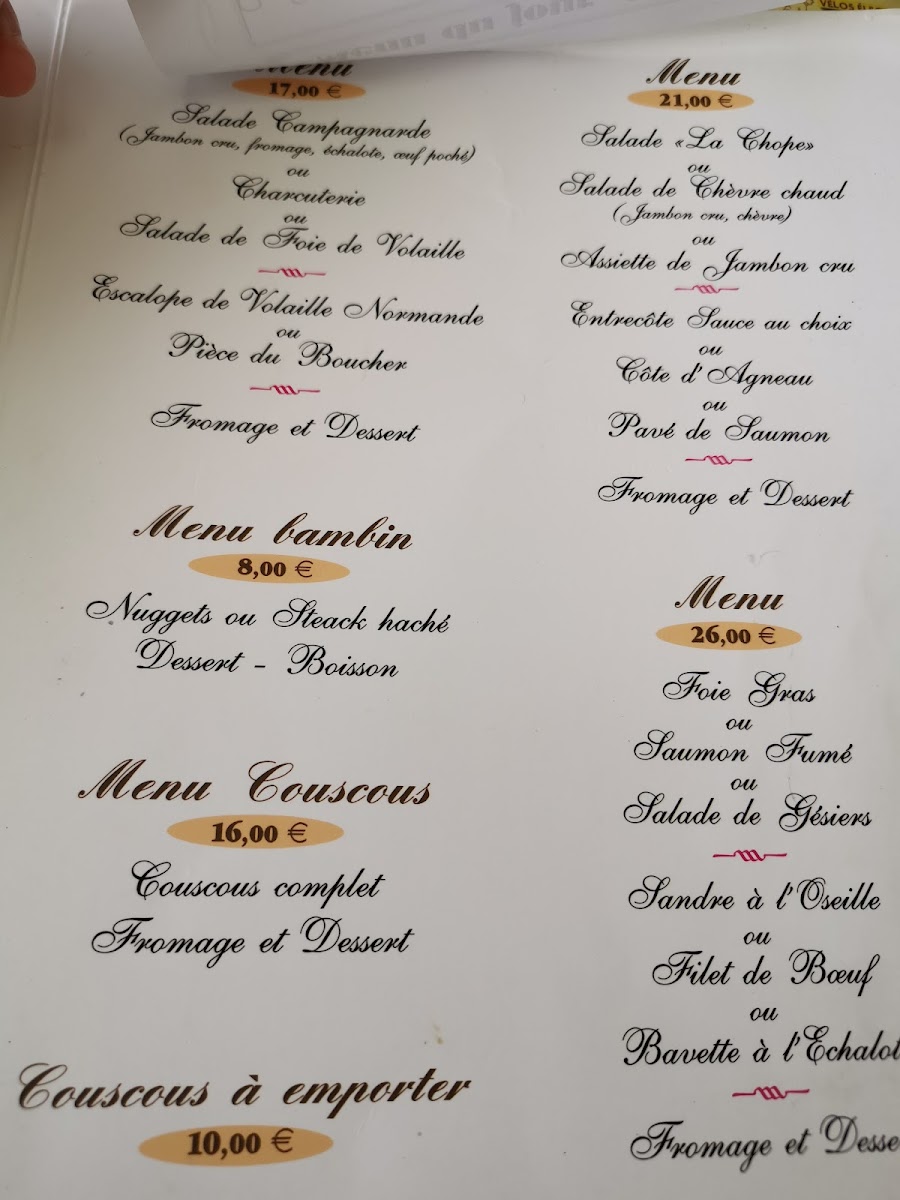 VÉLOS
Menu
17,00 €
Salade Campagnarde
(Jambon cru, fromage, échalote, œuf poché)
ou
Charcuterie
ou
Salade de Foie de Volaille
Escalope de Volaille Normande
ou
Pièce du Boucher
Fromage et Dessert
Menu bambin
8,00 €
Nuggets ou Steack haché
Dessert - Boisson
Menu Couscous
16,00 €
Couscous complet
Fromage et Dessert
Couscous à emporter
10,00 €
Menu
21,00 €
Salade «La Chope»
ou
Salade de Chèvre chaud
(Jambon cru, chèvre)
ou
Assiette de Jambon cru
Entrecôte Sauce au choix
ou
Côte d'Agneau
ou
Pavé de Saumon
Fromage et Dessert
Menu
26,00 €
Foie Gras
ou
Saumon Fumé
ou
Salade de Gésiers
Sandre à l'Oseille
ou
Filet de Bœuf
ou
Bavette à l'Echalot
Fromage et Desse